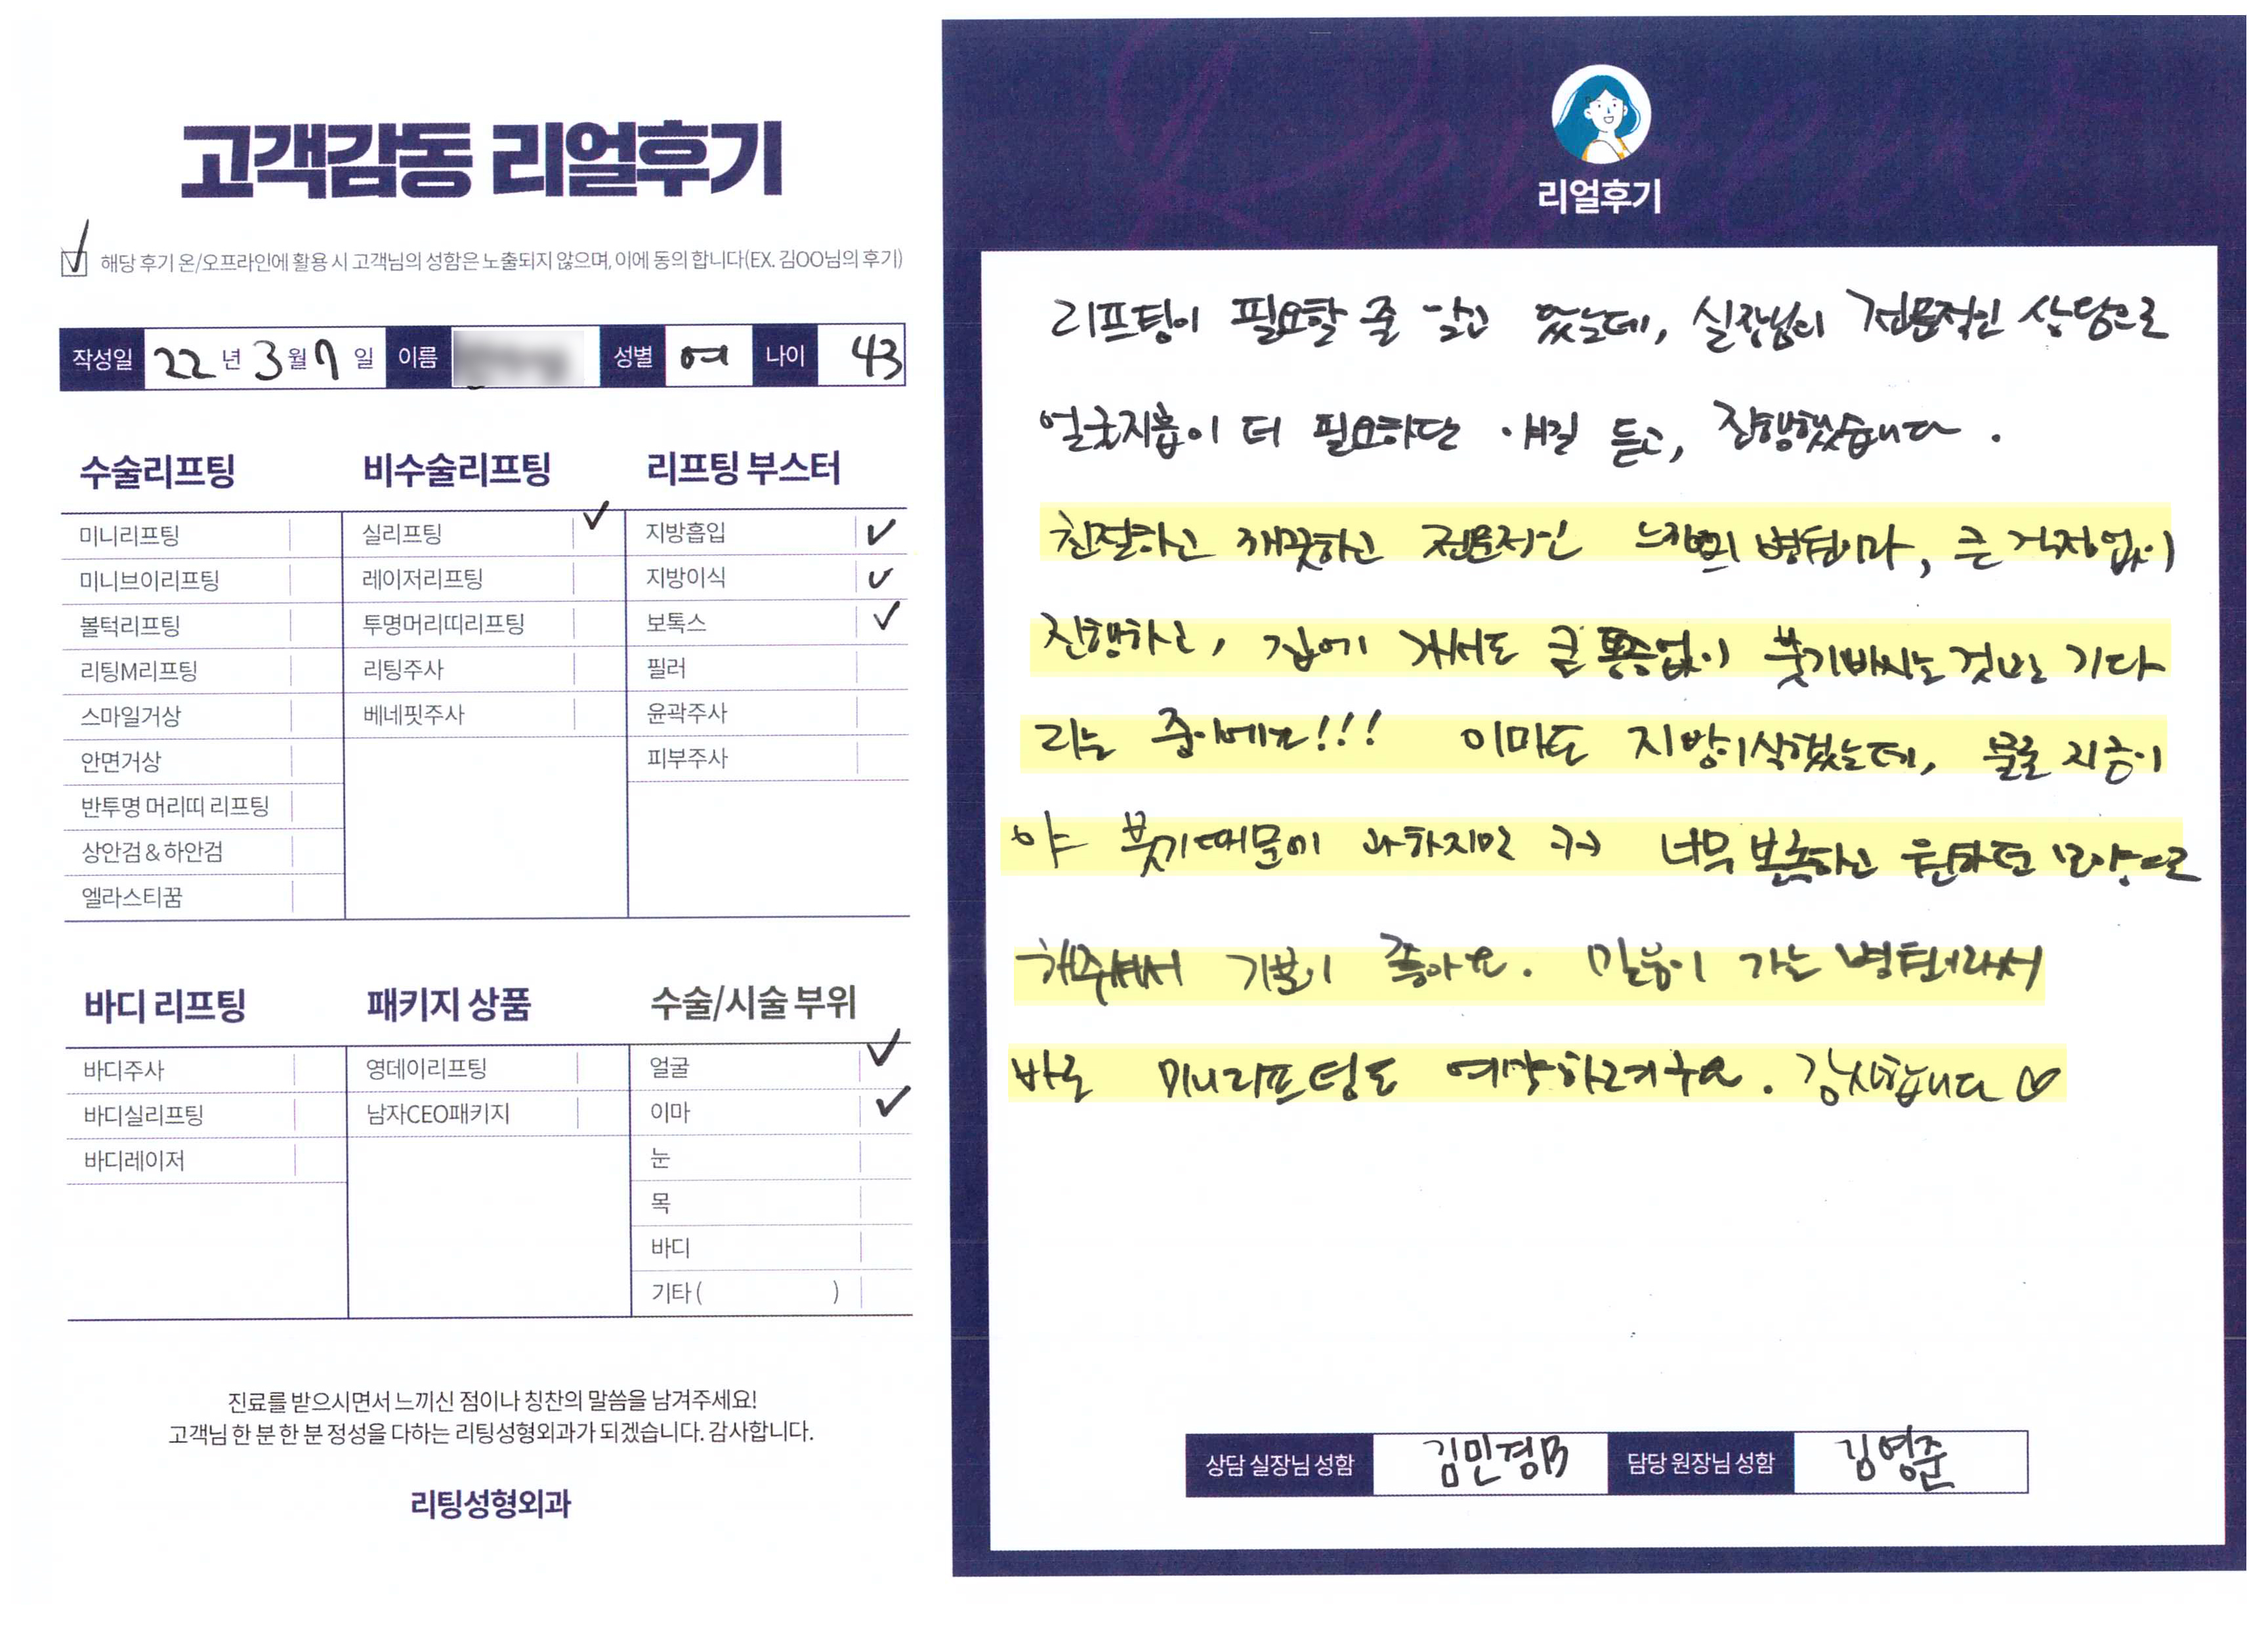 고객감동 리얼후기
해당 후기 온/오프라인에 활용 시 고객님의 성함은 노출되지 않으며, 이에 동의 합니다(EX. 김OO님의 후기)
작성일 22 년 3 월 7 일 이름 성별 여 나이 43
수술리프팅
미니리프팅
미니브이리프팅
볼턱리프팅
리팅M리프팅
스마일거상
안면거상
반투명 머리띠 리프팅
상안검 & 하안검
엘라스티꿈
비수술리프팅
실리프팅
레이저리프팅
투명머리띠리프팅
리팅주사
베네핏주사
리프팅 부스터
지방흡입
지방이식
보톡스
필러
윤곽주사
피부주사
바디 리프팅
바디주사
바디실리프팅
바디레이저
패키지 상품
영데이리프팅
남자CEO패키지
수술/시술 부위
얼굴
이마
눈
목
바디
기타 ( )
진료를 받으시면서 느끼신 점이나 칭찬의 말씀을 남겨주세요!
고객님 한 분 한 분 정성을 다하는 리팅성형외과가 되겠습니다. 감사합니다.
리팅성형외과
리얼후기
리프팅이 필요할 줄 알고 왔는데, 실장님의 전문적인 상담으로
얼굴지흡이 더 필요하단 얘길 듣고, 진행했습니다.
친절하고 깨끗하고 전문적인 느낌의 병원이라, 큰 걱정없이
진행하고, 집에 가서도 큰 통증없이 붓기빠지는 것만 기다
리는 중이에요!!! 이마도 지방이식했는데, 물론 지금이
야 붓기때문이 과하지만 ㅋㅋ 너무 볼록하고 원하던 모양으로
해주셔서 기분이 좋아요. 믿음이 가는 병원이라서
바로 미니리프팅도 예약하려구요. 감사합니다 ♡
상담 실장님 성함 김민경B 담당 원장님 성함 김영준